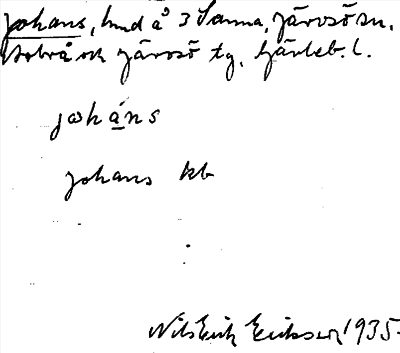 Johans, hmd å 3 Sanna, Järvsö sn,
Stobrå och Järvsö tg, Gävleb. l.
johans
Johans kb
Nils Erik Eriksson 1935.